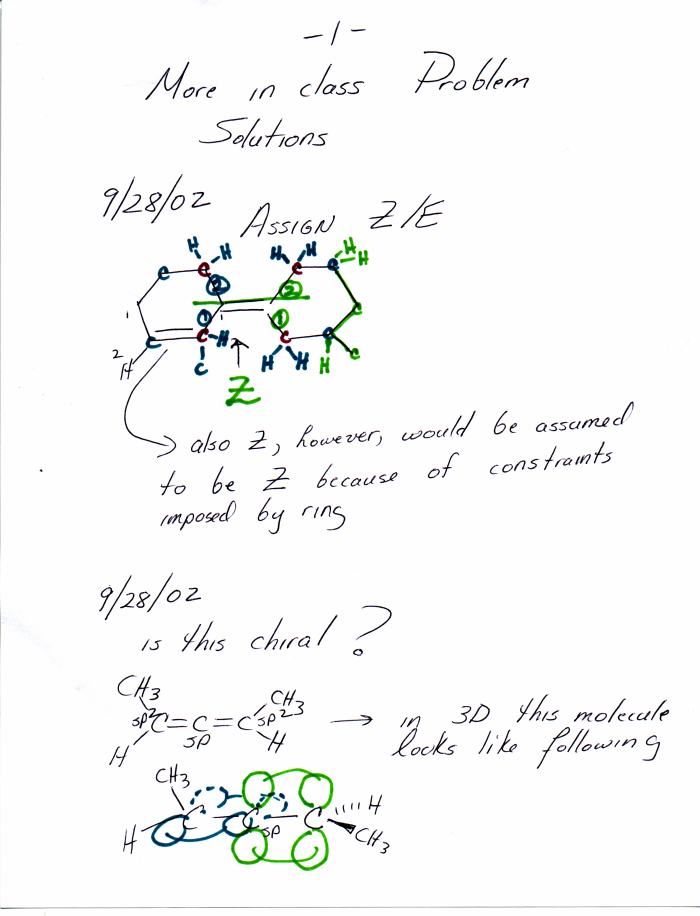 -1-
More in class Problem
Solutions
9/28/02 Assign Z/E
H H H H H H
C C C C
② ②
1
① ①
2 H C C H C
C H H H C
Z
also Z, however, would be assumed
to be Z because of constraints
imposed by ring
9/28/02
is this chiral?
CH3 CH3
sp2 C=C=C sp2 → in 3D this molecule
H sp H looks like following
CH3
C C C H
H sp CH3